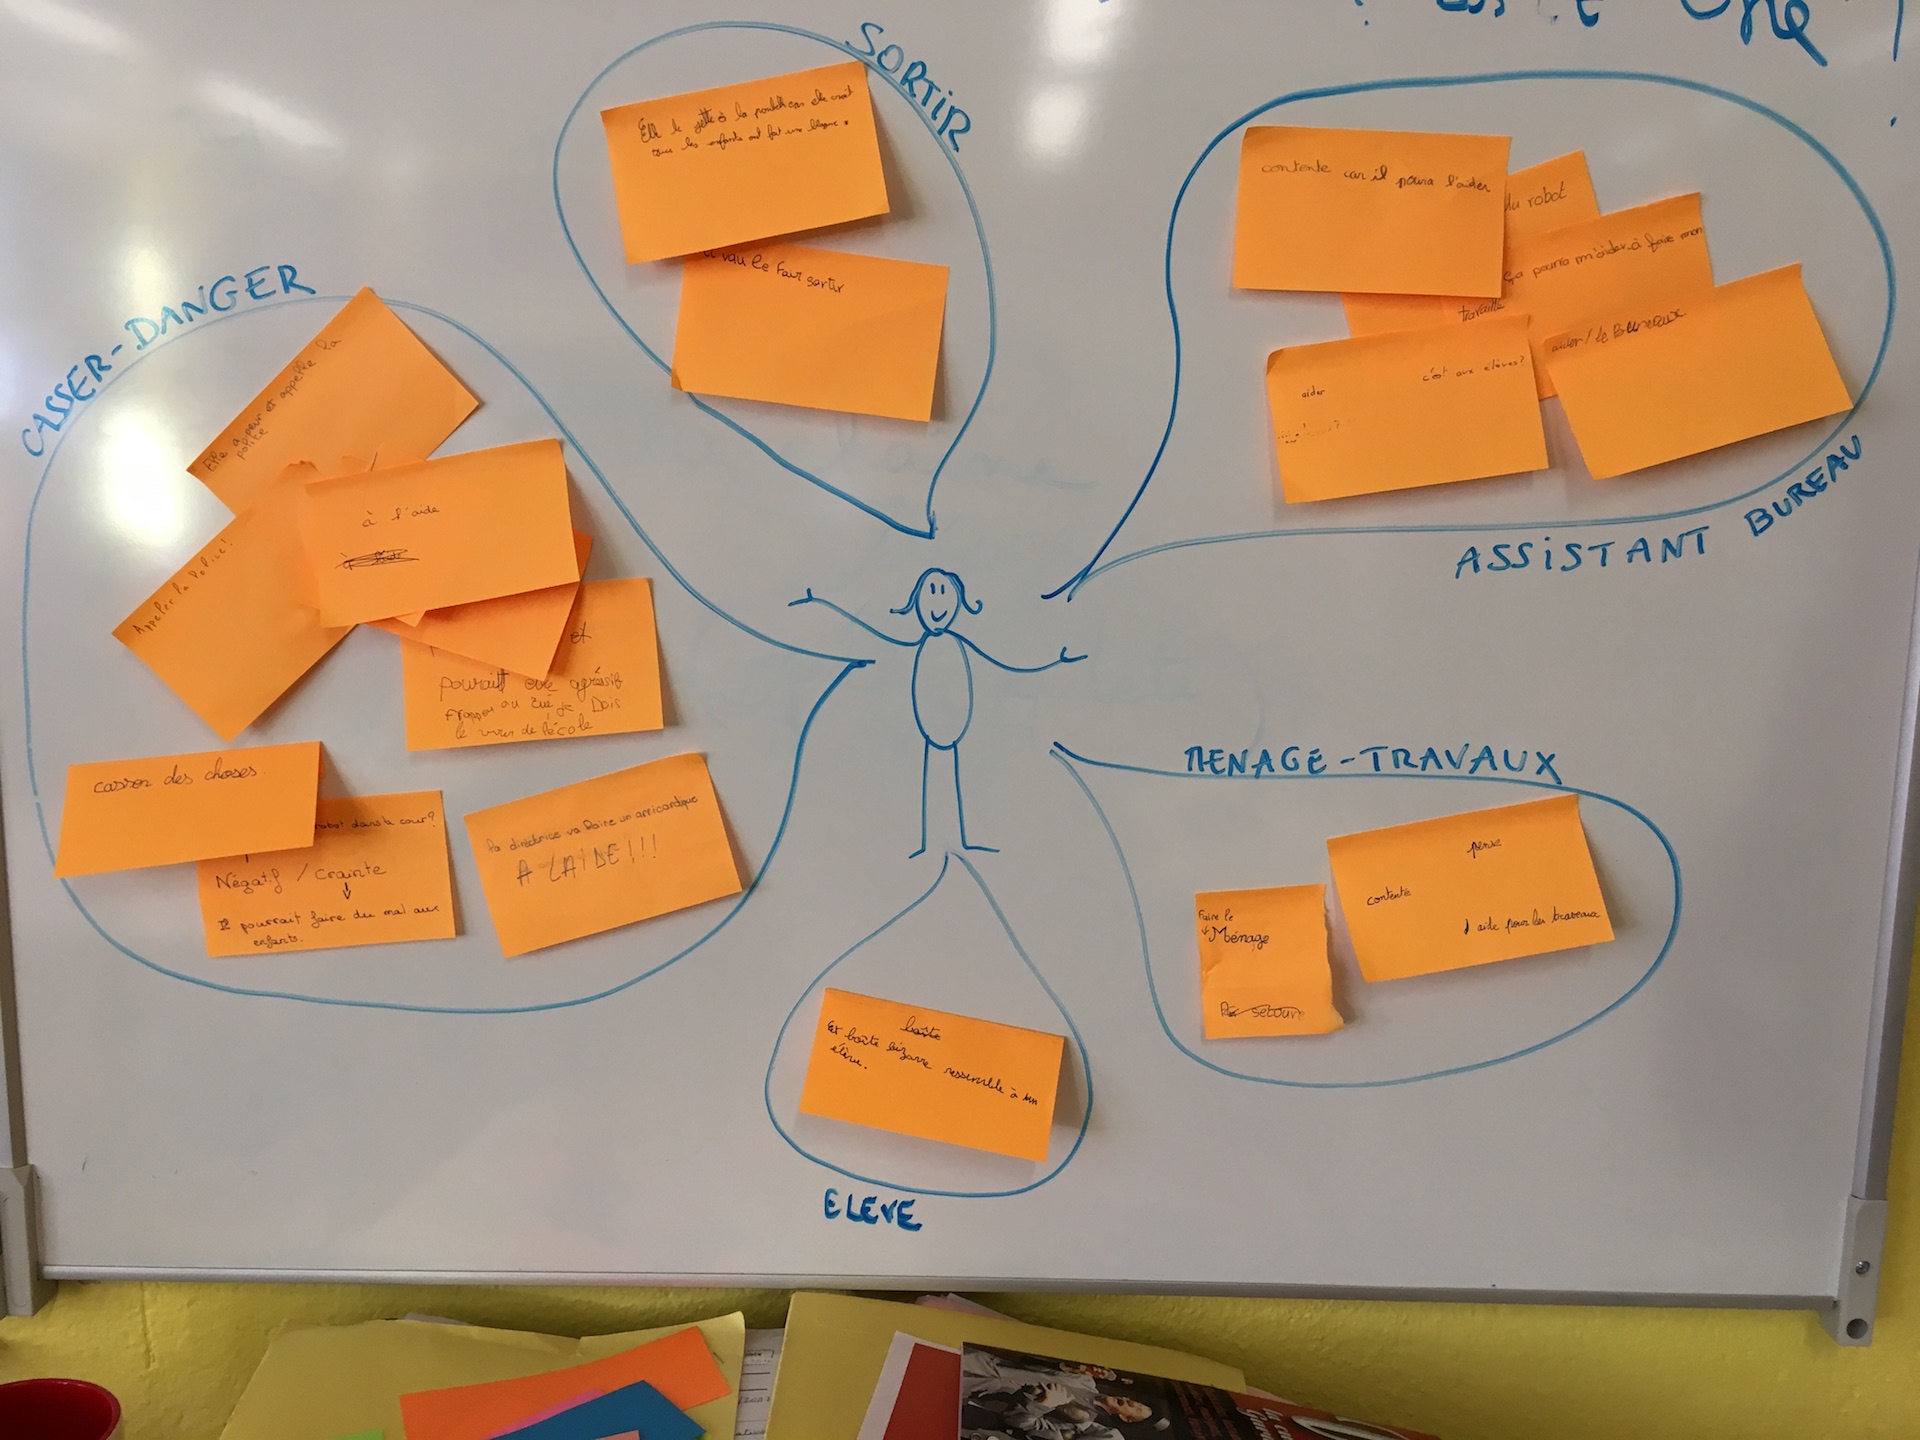 SORTIR
Elle le jette à la poubelle car elle croit
que les enfants ont fait une blague.
vau le fair sortir
CASSER-DANGER
Elle a appeur et appelle la
police
Appeler la Police!
à l'aide
et
pourait agréssif
frapper ou tué je Dois
le virer de l'école
casser des choses
robot dans la cour?
Négatif / crainte
↓
Il pourrait faire du mal aux
enfants.
la directrice va faire un arricardique
A LAIDE!!!
ASSISTANT BUREAU
contente car il poura l'aider
du robot
ça poura m'aider à faire mon
travaille
aider / le Bureaux
c'est aux élèves?
aider
MENAGE-TRAVAUX
Faire le
Ménage
pense
contente
aide pour les traveaux
boîte
Et boîte bizarre ressemble à un
élève.
ELEVE